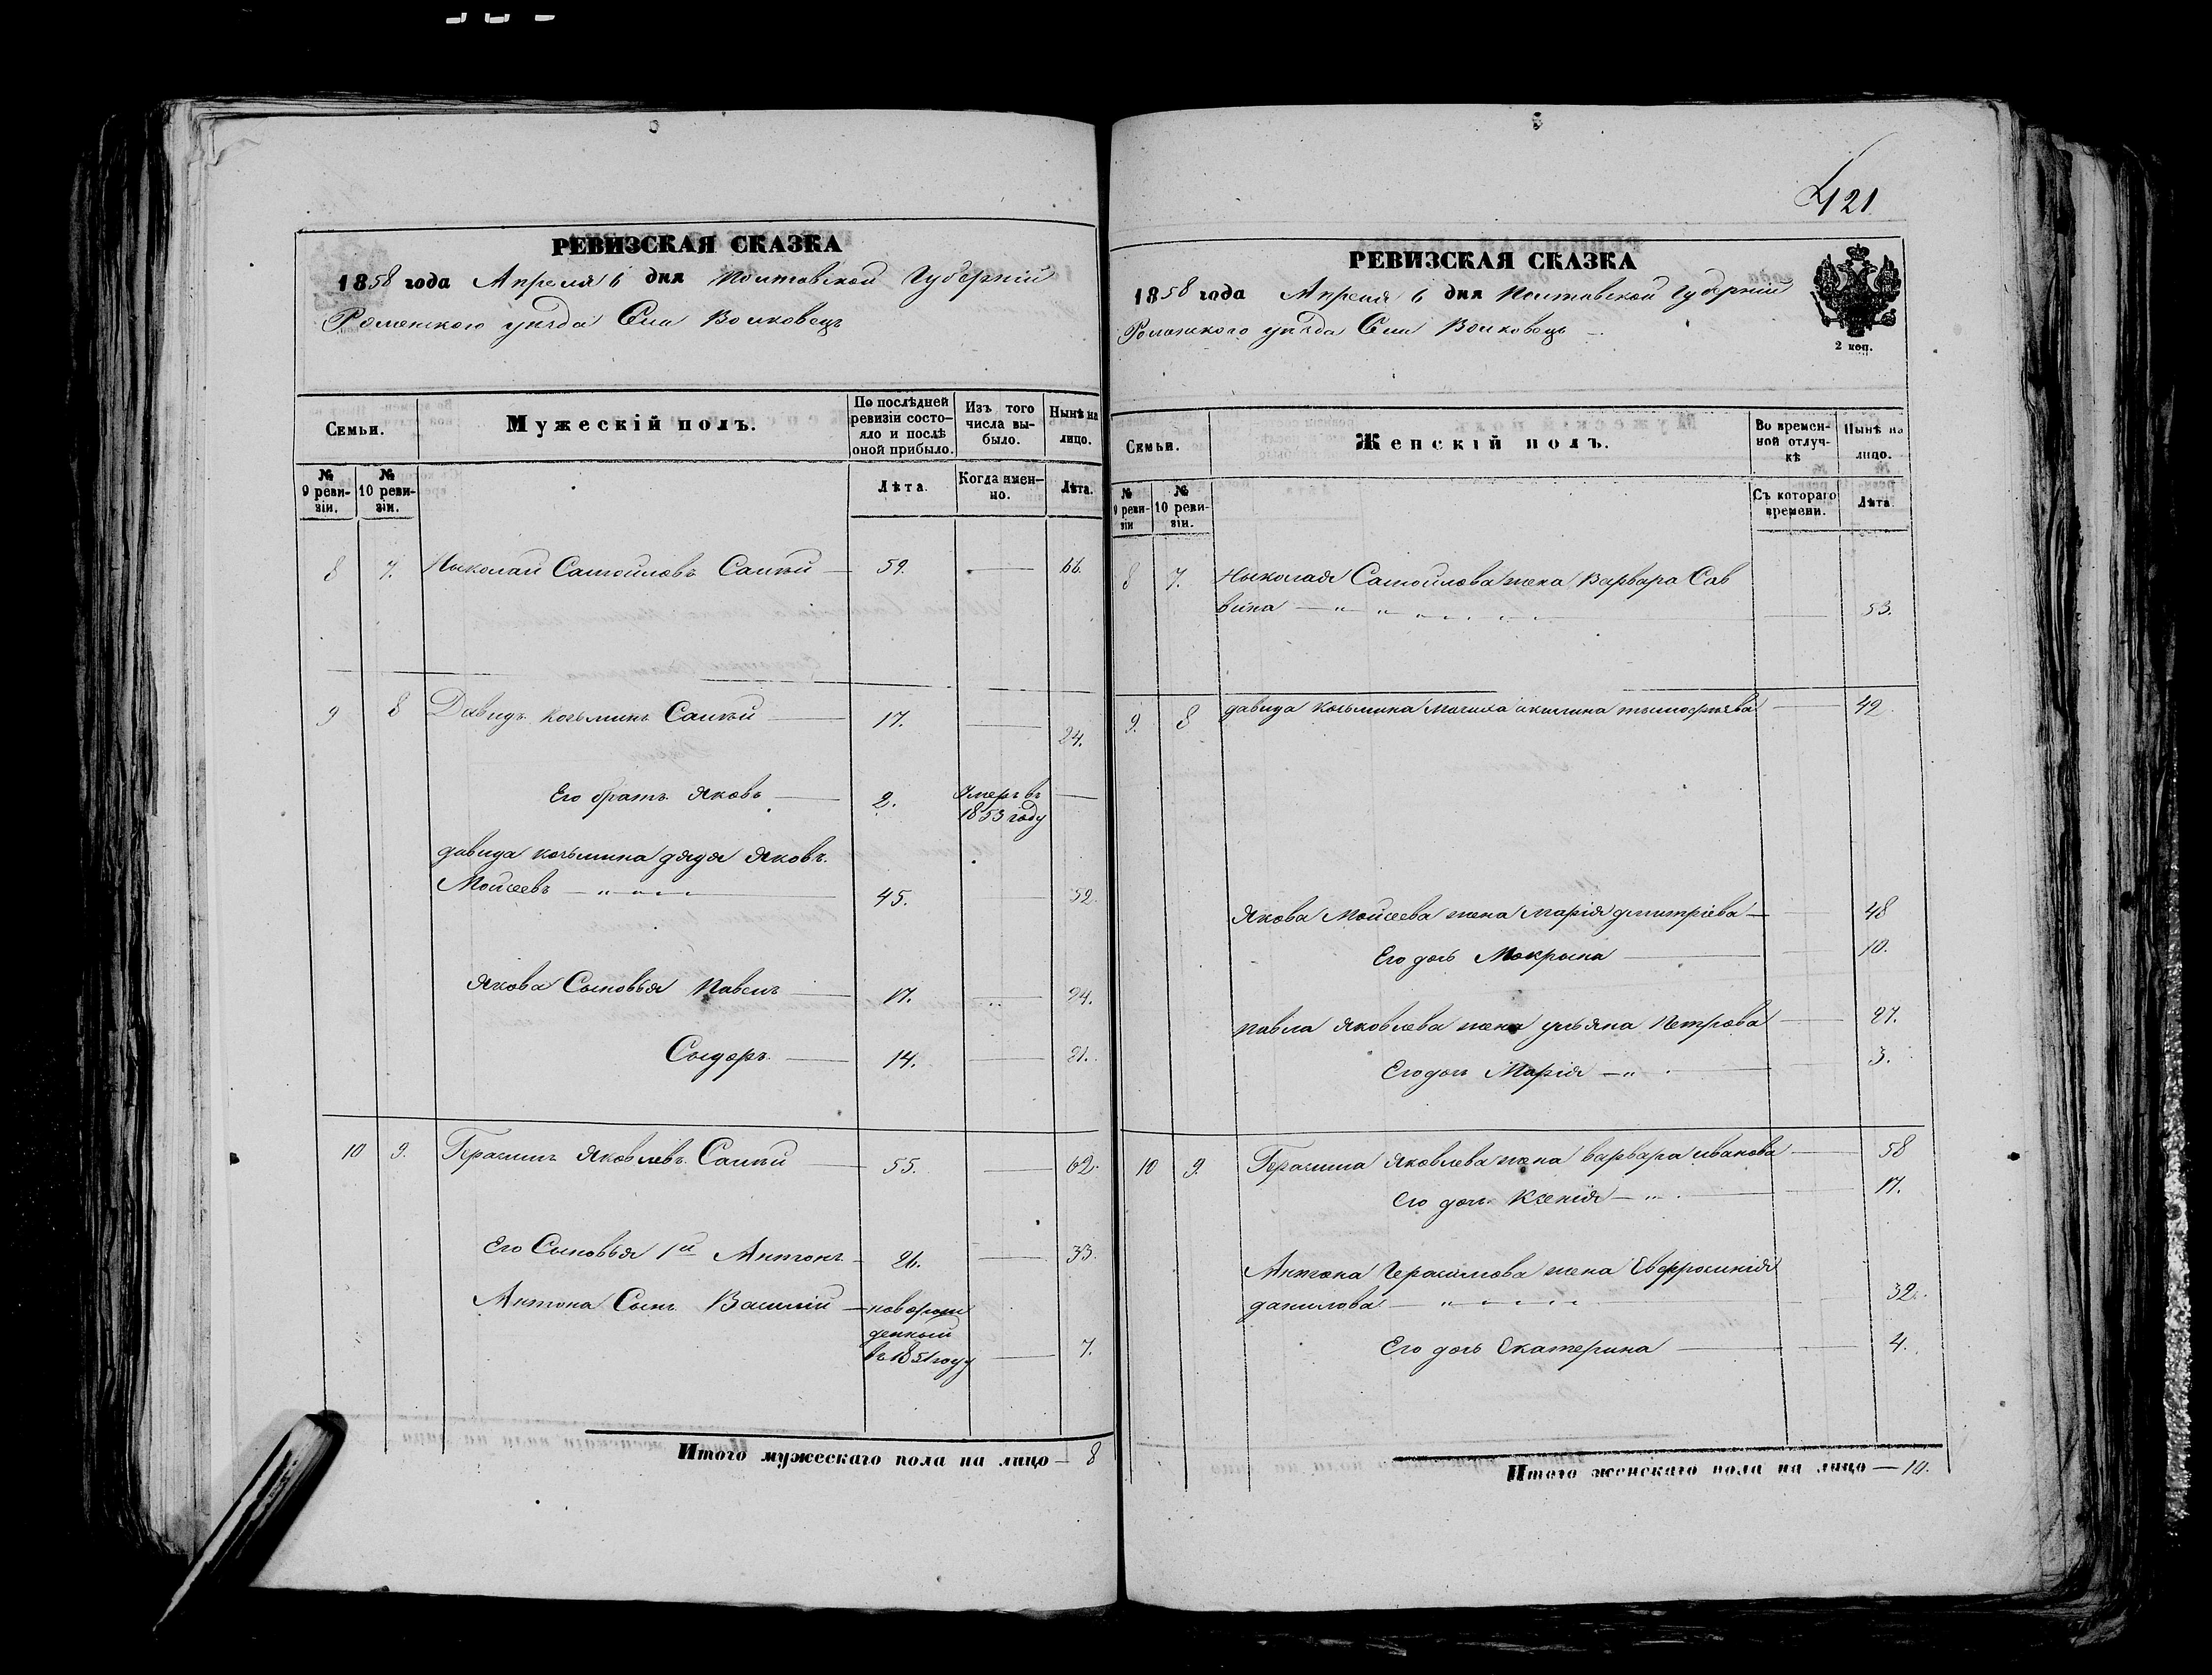 421
РЕВИЗСКАЯ СКАЗКА
1858 года Апреля 6 дня Полтавской Губерніи
Роменского уезда Села Волковецъ
Семьи.
Мужескій полъ.
По послѣдней ревизіи состо-
яло и послѣ
оной прибыло.
Изъ того
числа вы-
было.
Нынѣ на
лицо.
№
9 реви-
зіи.
№
10 реви-
зіи.
Лѣта.
Когда имен-
но.
Лѣта.
8 7. Николай Самойловъ 59. — 66.
9 8 Давидъ Козьминъ 17. — 24.
Его братъ Яковъ — 2. Умеръ въ —
1853 году
Давида Козьмина дядя Яковъ
Мойсеевъ — 45. — 52.
Якова Сыновья Павелъ — 17. 24.
Сыдоръ — 14. — 21.
10 9. Герасимъ Яковлевъ 55. — 62.
Его Сыновья 1й Антонъ — 26. — 33.
Антона Сынъ Василій — новорож
денный
въ 1851 году — 7.
Итого мужескаго пола на лицо — 8
РЕВИЗСКАЯ СКАЗКА
1858 года Апреля 6 дня Полтавской Губерніи
Роменского уезда Села Волковецъ —
2 коп.
Семьи.
Женскій полъ.
Во времен-
ной отлуч-
кѣ
Нынѣ на
лицо.
№
9 реви-
зіи
№
10 реви-
зіи.
Съ котораго
времени.
Лѣта
8 7. Николая Самойлова жена Варвара Сав
вина — 53.
9. 8 Давида Козьмина Мачиха Акилина Тымофѣева — 42.
Якова Мойсеева жена Марія Дмитріева — 48
Его дочь Мокрына — 10.
Павла Яковлева жена Ульяна Петрова — 27.
Его дочь Марія — 3.
10 9. Герасима Яковлева жена Варвара Иванова — 58
Его дочь Ксенія — 17.
Антона Герасимова жена Евфросинія
Данилова — 32.
Его дочь Екатерина — 4.
Итого женскаго пола на лицо — 10.